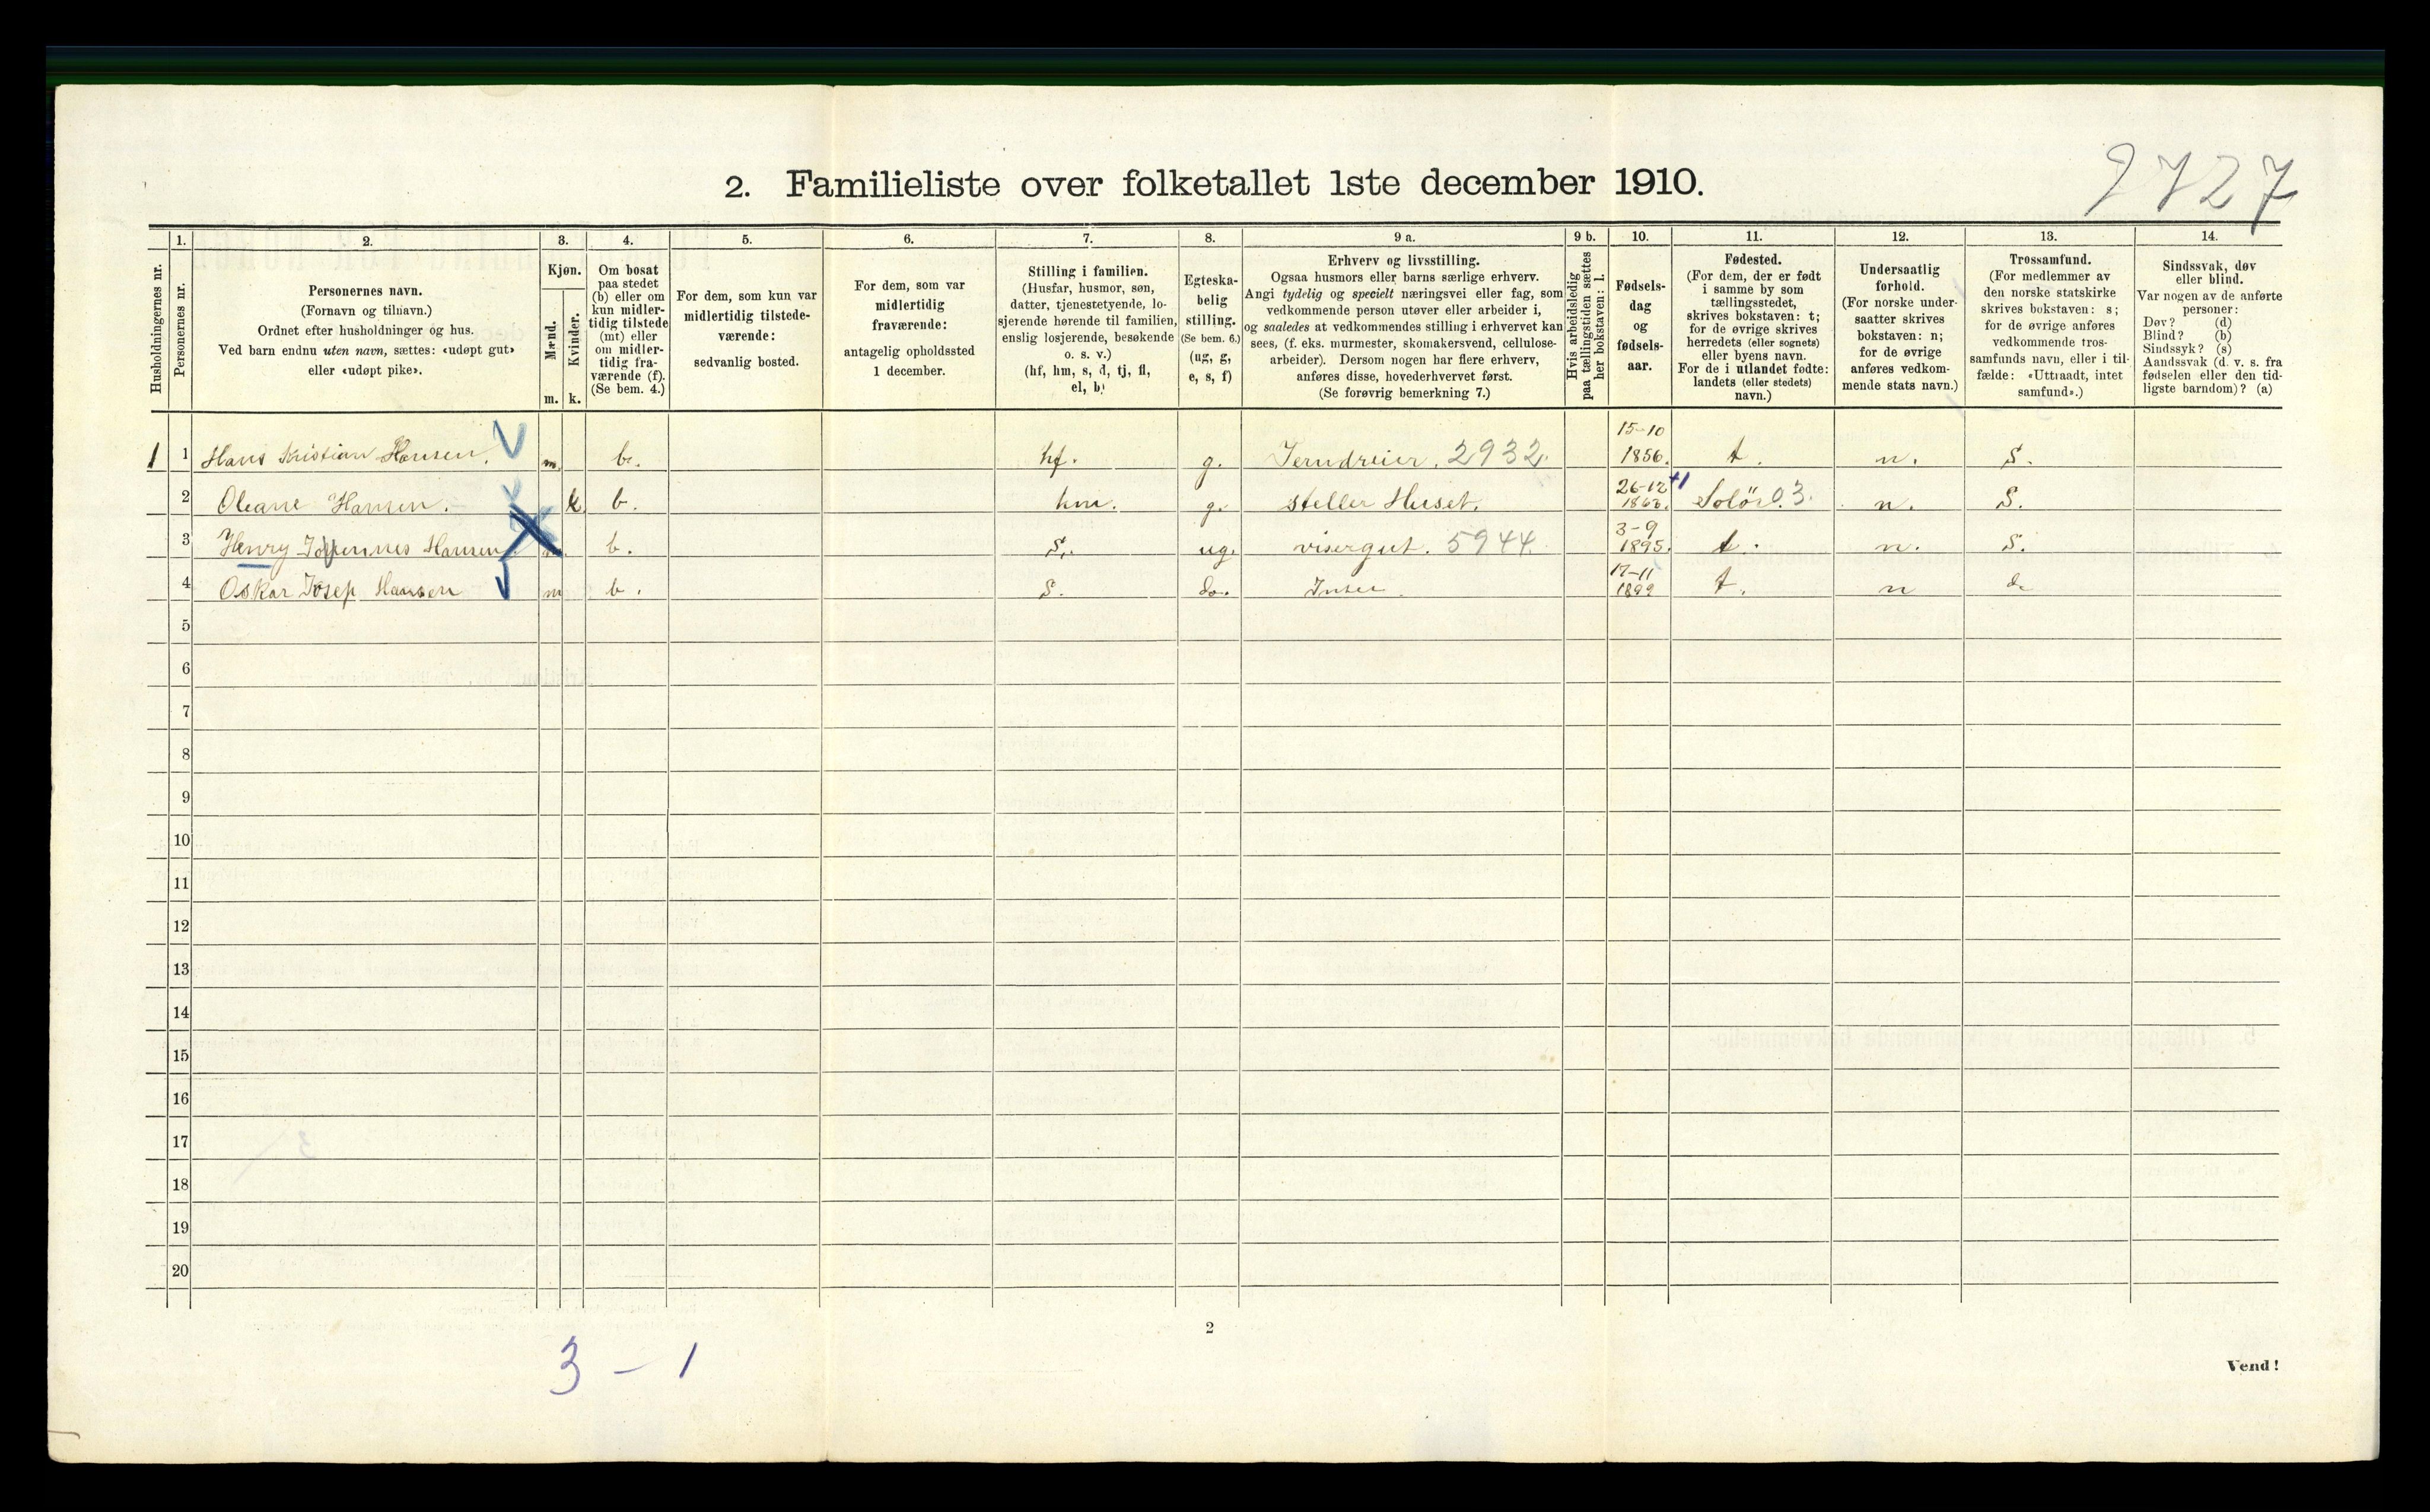 2727
2. Familieliste over folketallet 1ste december 1910.
Husholdningernes nr.
1.
Personernes nr.
2.
Personernes navn.
(Fornavn og tilnavn.)
Ordnet efter husholdninger og hus.
Ved barn endnu uten navn, sættes: «udøpt gut»
eller «udøpt pike».
3.
Kjøn.
Mænd.
m.
Kvinder.
k.
4.
Om bosat
paa stedet
(b) eller om
kun midler-
tidig tilstede
(mt) eller
om midler-
tidig fra-
værende (f).
(Se bem. 4.)
5.
For dem, som kun var
midlertidig tilstede-
værende:
sedvanlig bosted.
6.
For dem, som var
midlertidig
fraværende:
antagelig opholdssted
1 december.
7.
Stilling i familien.
(Husfar, husmor, søn,
datter, tjenestetyende, lo-
sjerende hørende til familien,
enslig losjerende, besøkende
o. s. v.)
(hf, hm, s, d, tj, fl,
el, b)
8.
Egteska-
belig
stilling.
(Se bem. 6.)
(ug, g,
e, s, f)
9 a.
Erhverv og livsstilling.
Ogsaa husmors eller barns særlige erhverv.
Angi tydelig og specielt næringsvei eller fag, som
vedkommende person utøver eller arbeider i,
og saaledes at vedkommendes stilling i erhvervet kan
sees, (f. eks. murmester, skomakersvend, cellulose-
arbeider). Dersom nogen har flere erhverv,
anføres disse, hovederhvervet først.
(Se forøvrig bemerkning 7.)
9 b.
Hvis arbeidsledig
paa tællingstiden sættes
her bokstaven: l.
10.
Fødsels-
dag
og
fødsels-
aar.
11.
Fødested.
(For dem, der er født
i samme by som
tællingsstedet,
skrives bokstaven: t;
for de øvrige skrives
herredets (eller sognets)
eller byens navn.
For de i utlandet fødte:
landets (eller stedets)
navn.)
12.
Undersaatlig
forhold.
(For norske under-
saatter skrives
bokstaven: n;
for de øvrige
anføres vedkom-
mende stats navn.)
13.
Trossamfund.
(For medlemmer av
den norske statskirke
skrives bokstaven: s;
for de øvrige anføres
vedkommende tros-
samfunds navn, eller i til-
fælde: «Uttraadt, intet
samfund».)
14.
Sindssvak, døv
eller blind.
Var nogen av de anførte
personer:
Døv? (d)
Blind? (b)
Sindssyk? (s)
Aandssvak (d. v. s. fra
fødselen eller den tid-
ligste barndom)? (a)
1 1 Hans Kristian Hansen. m. b. hf. g. Jerndreier. 2932. 15-10 1856. t. n. S.
2 Oleane Hansen. k. b. hm. g. steller Huset. 26-12 1863. +1 Solör. 03. n. S.
3 Henry Johannes Hansen. m. b. S. ug. visergut. 5944. 3-9 1895. t. n. S.
4 Oskar Josep Hansen m b. S. do. 17-11 1899 t. n do
5
6
7
8
9
10
11
12
13
14
15
16
17
18
19
20
2
3 - 1
Vend!